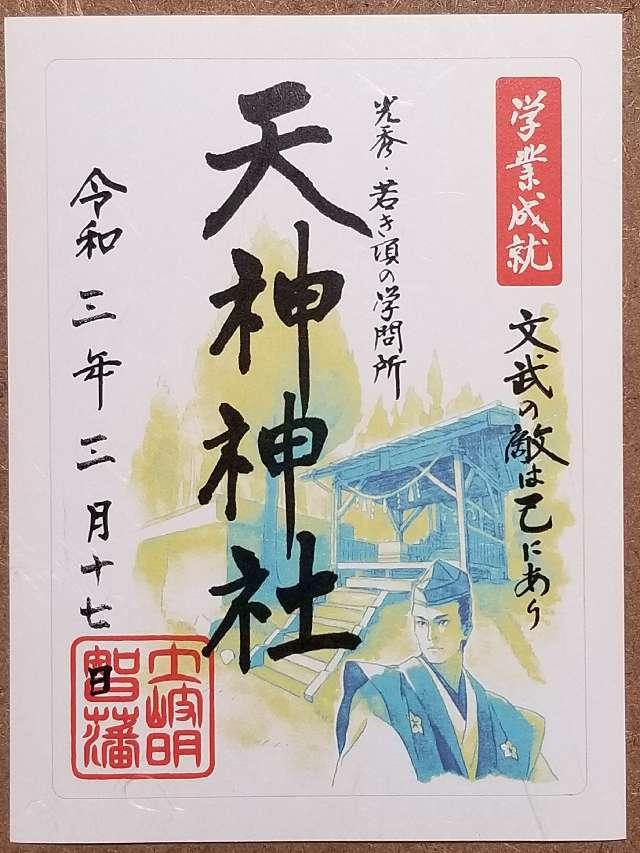 学業成就
文武の敵は己にあり
光秀・若き頃の学問所
天神神社
令和三年二月十七日
土岐明
智藩